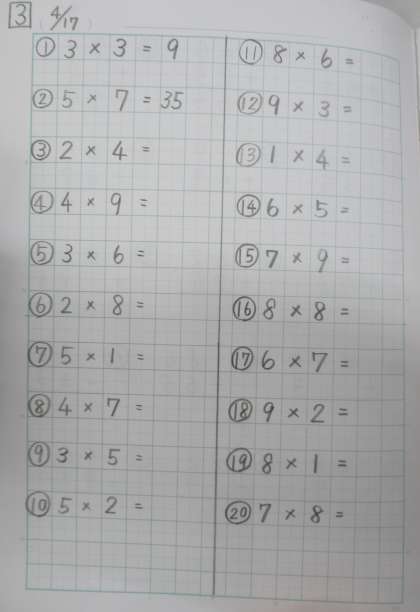 3 4/17
① 3 × 3 = 9
② 5 × 7 = 35
③ 2 × 4 =
④ 4 × 9 =
⑤ 3 × 6 =
⑥ 2 × 8 =
⑦ 5 × 1 =
⑧ 4 × 7 =
⑨ 3 × 5 =
⑩ 5 × 2 =
⑪ 8 × 6 =
⑫ 9 × 3 =
⑬ 1 × 4 =
⑭ 6 × 5 =
⑮ 7 × 9 =
⑯ 8 × 8 =
⑰ 6 × 7 =
⑱ 9 × 2 =
⑲ 8 × 1 =
⑳ 7 × 8 =